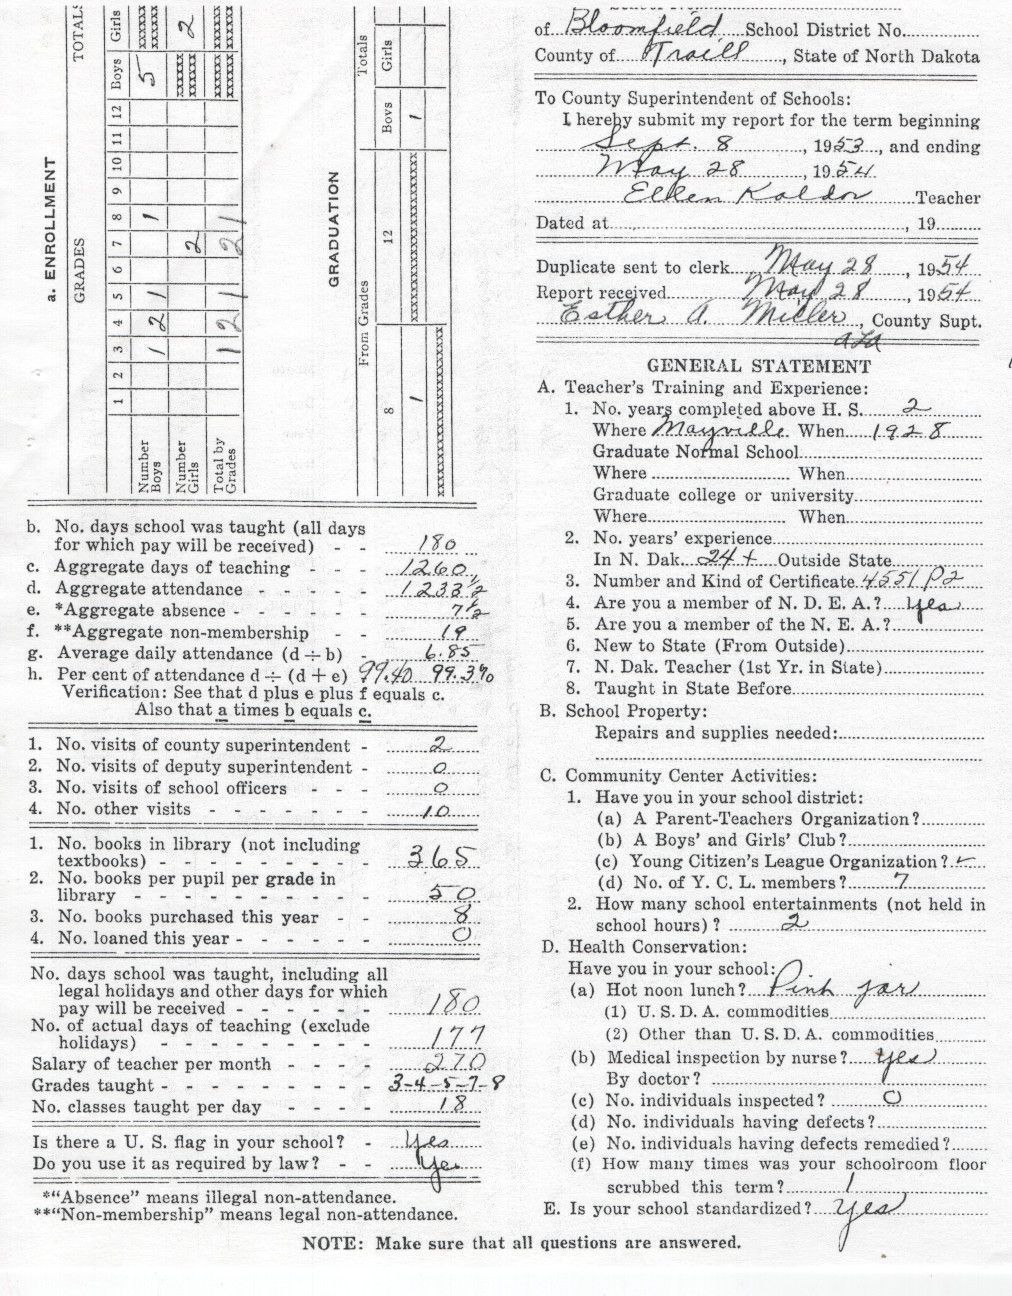 a. ENROLLMENT
GRADES
TOTALS
1 2 3 4 5 6 7 8 9 10 11 12 Boys Girls
Number Boys 1 2 1 1 5 xxxxx
Number Girls 2 xxxxx 2
Total by Grades 1 2 1 2 1 xxxxx xxxxx
GRADUATION
From Grades Totals
8 12 Boys Girls
1 xxxxxxxxxxxxxxxxxxx 1
xxxxxxxxxxxxxxxxxxx
b. No. days school was taught (all days
for which pay will be received) - - 180
c. Aggregate days of teaching - - - 1260
d. Aggregate attendance - - - - - 1233 1/2
e. *Aggregate absence - - - - - - 7 1/2
f. **Aggregate non-membership - - 19
g. Average daily attendance (d ÷ b) - 6.85
h. Per cent of attendance d ÷ (d + e) 99.40 99.3%
Verification: See that d plus e plus f equals c.
Also that a times b equals c.
1. No. visits of county superintendent - 2
2. No. visits of deputy superintendent - 0
3. No. visits of school officers - - - 0
4. No. other visits - - - - - - 10
1. No. books in library (not including
textbooks) - - - - - - - - - 365
2. No. books per pupil per grade in
library - - - - - - - - - - 50
3. No. books purchased this year - - 8
4. No. loaned this year - - - - - - 0
No. days school was taught, including all
legal holidays and other days for which
pay will be received - - - - - - 180
No. of actual days of teaching (exclude
holidays) - - - - - - - - - 177
Salary of teacher per month - - - - 270
Grades taught - - - - - - - - - 3-4-5-7-8
No. classes taught per day - - - - 18
Is there a U. S. flag in your school? - Yes
Do you use it as required by law? - - Yes
*"Absence" means illegal non-attendance.
**"Non-membership" means legal non-attendance.
of Bloomfield School District No.
County of Traill, State of North Dakota
To County Superintendent of Schools:
I hereby submit my report for the term beginning
Sept. 8, 1953, and ending
May 28, 1954
Ellen Kaldor Teacher
Dated at , 19
Duplicate sent to clerk May 28, 1954
Report received May 28, 1954
Esther A. Miller, County Supt.
GENERAL STATEMENT
A. Teacher's Training and Experience:
1. No. years completed above H. S. 2
Where Mayville When 1928
Graduate Normal School
Where When
Graduate college or university
Where When
2. No. years' experience
In N. Dak. 24+ Outside State
3. Number and Kind of Certificate 4551 P2
4. Are you a member of N. D. E. A.? Yes
5. Are you a member of the N. E. A.?
6. New to State (From Outside)
7. N. Dak. Teacher (1st Yr. in State)
8. Taught in State Before
B. School Property:
Repairs and supplies needed:
C. Community Center Activities:
1. Have you in your school district:
(a) A Parent-Teachers Organization?
(b) A Boys' and Girls' Club?
(c) Young Citizen's League Organization? ✓
(d) No. of Y. C. L. members? 7
2. How many school entertainments (not held in
school hours)? 2
D. Health Conservation:
Have you in your school:
(a) Hot noon lunch? Pint jar
(1) U. S. D. A. commodities
(2) Other than U. S. D. A. commodities
(b) Medical inspection by nurse? Yes
By doctor?
(c) No. individuals inspected? 0
(d) No. individuals having defects?
(e) No. individuals having defects remedied?
(f) How many times was your schoolroom floor
scrubbed this term? 1
E. Is your school standardized? Yes
NOTE: Make sure that all questions are answered.